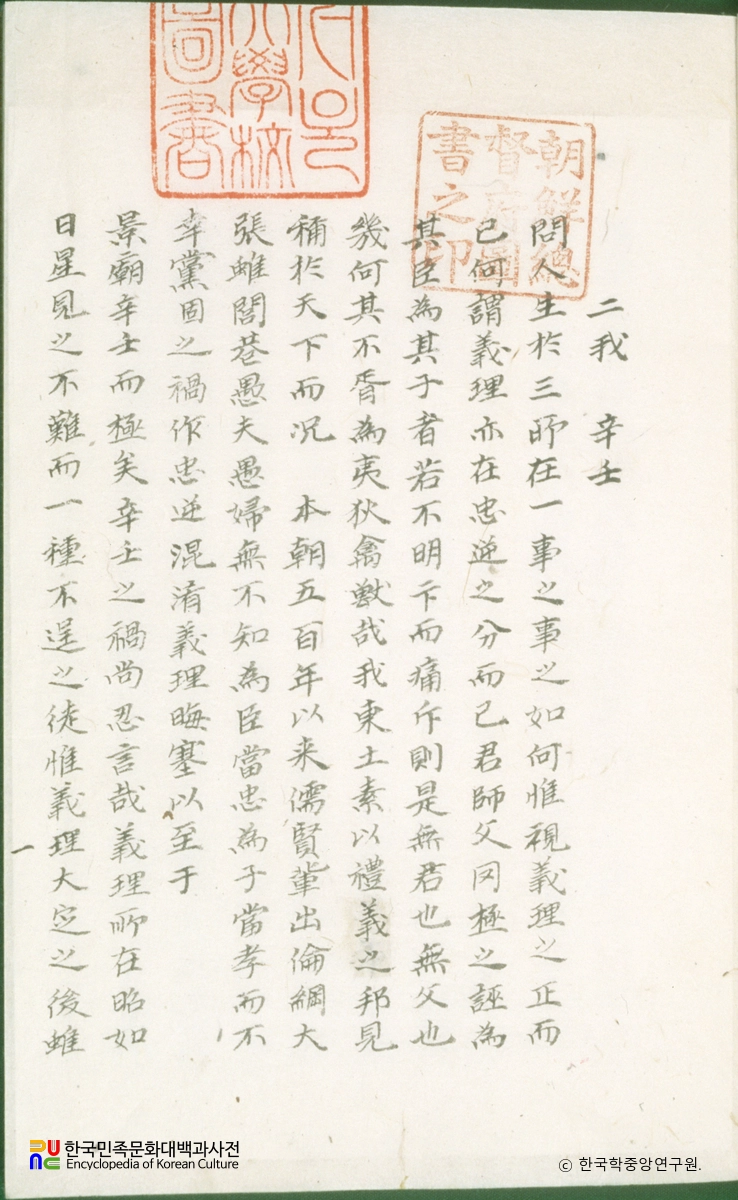 서울
大學校
圖書
朝鮮總
督府圖
書之印
二我 辛壬
問人生於三所在一事之事之如何惟視義理之正而
已何謂義理亦在忠逆之分而已君師父罔極之誣為
其臣為其子者若不明卞而痛斥則是無君也無父也
幾何其不胥為夷狄禽獸哉我東土素以禮義之邦見
稱於天下而况 本朝五百年以来儒賢輩出倫綱大
張雖閭巷愚夫愚婦無不知為臣當忠為子當孝而不
幸黨固之禍作忠逆混淆義理晦塞以至于
景廟辛壬而極矣辛壬之禍尚忍言哉義理所在昭如
日星見之不難而一種不逞之徒惟義理大定之後雖
一
한국민족문화대백과사전
Encyclopedia of Korean Culture
© 한국학중앙연구원.